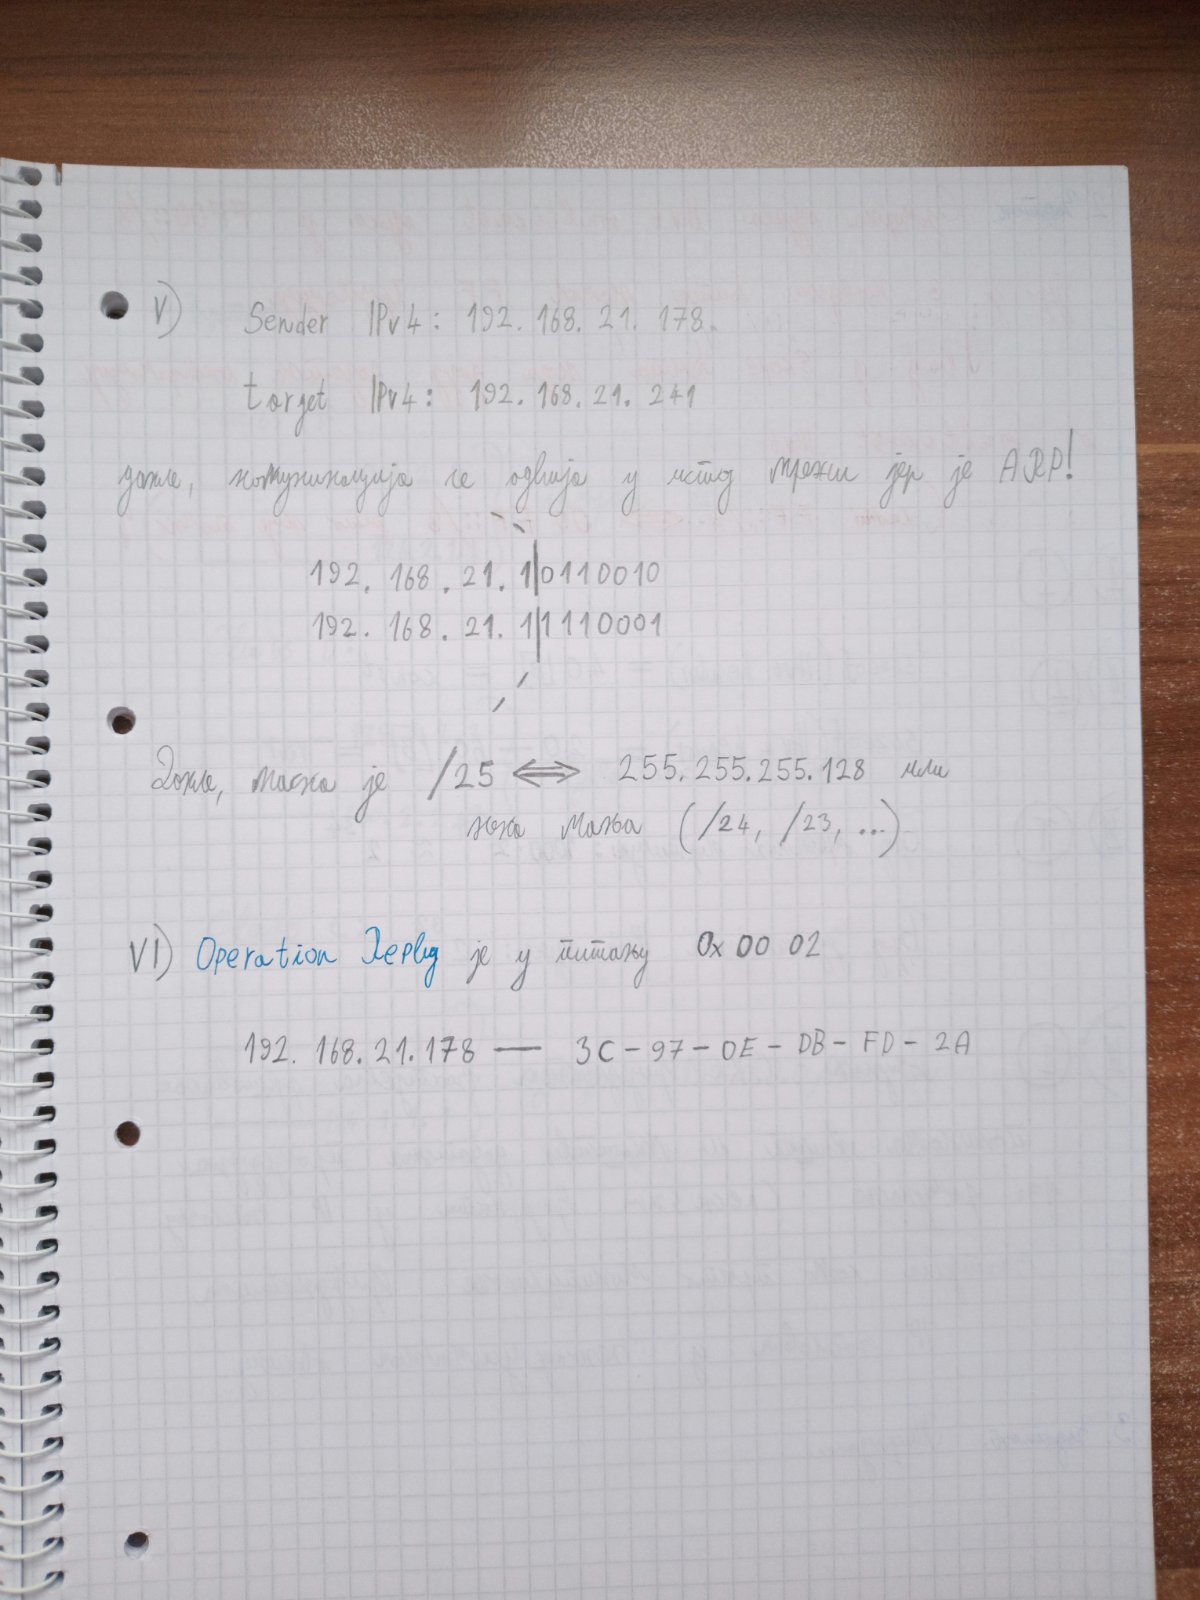 V) Sender IPv4: 192.168.21.178.
target IPv4: 192.168.21.241
дакле, комуникација се одвија у истој мрежи јер је ARP!
192.168.21.1|0110010
192.168.21.1|1110001
Дакле, маска је /25 ⟺ 255.255.255.128 или
нека мања (/24, /23, ...)
VI) Operation Reply је у питању 0x 00 02
192.168.21.178 — 3C-97-0E-DB-FD-2A